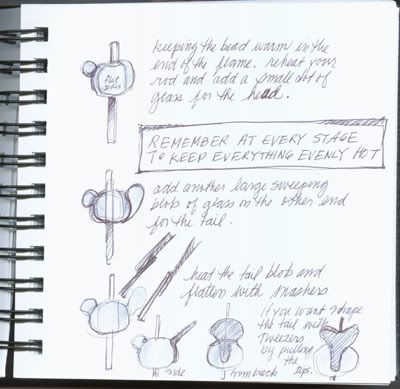 keeping the bead warm in the
end of the flame. reheat your
rod and add a small dot of
glass for the head.
flat
sides
REMEMBER AT EVERY STAGE
TO KEEP EVERYTHING EVENLY HOT
add another large sweeping
blob of glass on the other end
for the tail.
heat the tail blob and
flatten with mashers
if you want shape
the tail with
tweezers
by pulling
the
tips.
side
from back